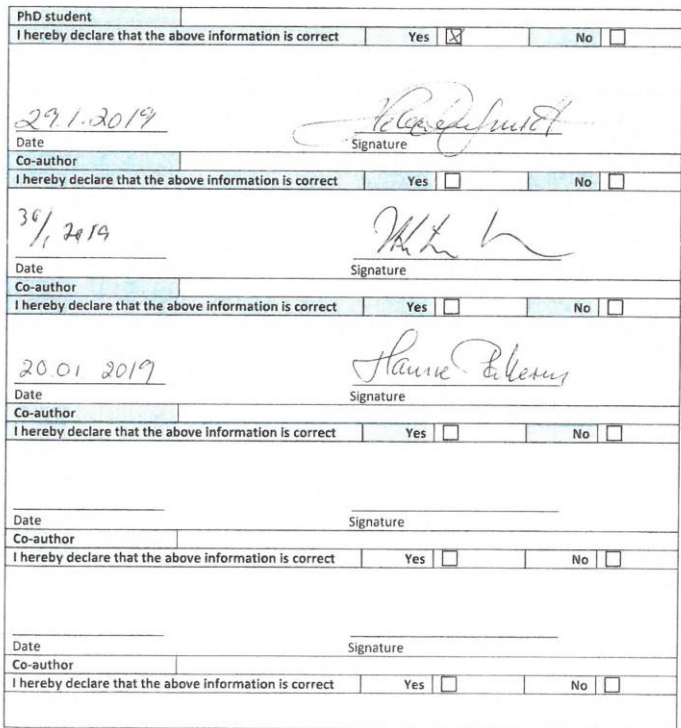 PhD student
I hereby declare that the above information is correct Yes ☒ No ☐
29.1.2019
Date Signature
Co-author
I hereby declare that the above information is correct Yes ☐ No ☐
30/1 2019
Date Signature
Co-author
I hereby declare that the above information is correct Yes ☐ No ☐
20.01 2019 Hanne
Date Signature
Co-author
I hereby declare that the above information is correct Yes ☐ No ☐
Date Signature
Co-author
I hereby declare that the above information is correct Yes ☐ No ☐
Date Signature
Co-author
I hereby declare that the above information is correct Yes ☐ No ☐